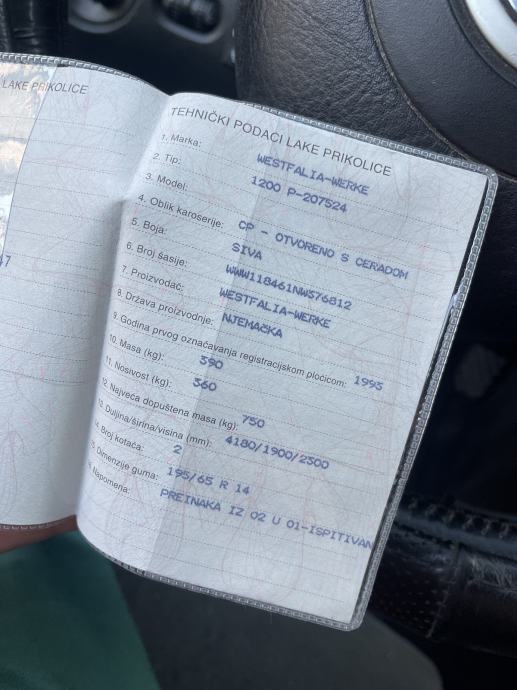 LAKE PRIKOLICE
47
TEHNIČKI PODACI LAKE PRIKOLICE
1. Marka: WESTFALIA-WERKE
2. Tip: 1200 P-207524
3. Model:
4. Oblik karoserije: CP - OTVORENO S CERADOM
5. Boja: SIVA
6. Broj šasije: WWW118461NWS76812
7. Proizvođač: WESTFALIA-WERKE
8. Država proizvodnje: NJEMAČKA
9. Godina prvog označavanja registracijskom pločicom: 1995
10. Masa (kg): 390
11. Nosivost (kg): 360
12. Najveća dopuštena masa (kg): 750
13. Duljina/širina/visina (mm): 4180/1900/2300
14. Broj kotača: 2
15. Dimenzije guma: 195/65 R 14
Napomena: PREINAKA IZ O2 U O1-ISPITIVAN